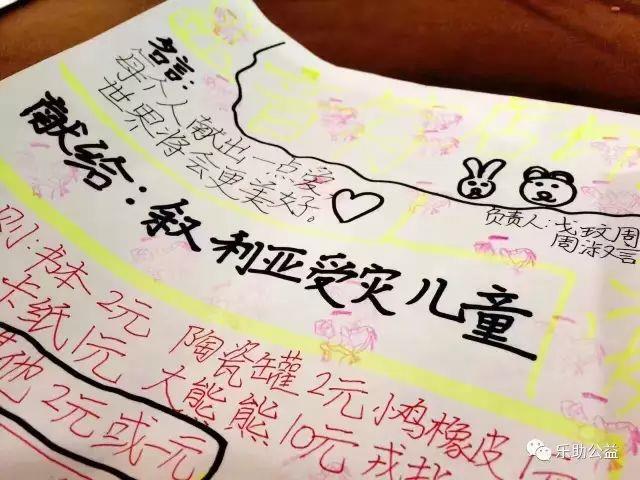 名言:
每个人献出一点爱
世界将会更美好。
献给:叙利亚受灾儿童
负责人:戈玟周
周淑言
则:书本2元 陶瓷罐2元 小鸡橡皮1元
卡纸1元 大熊熊10元 戒指
其他2元或 元
乐助公益